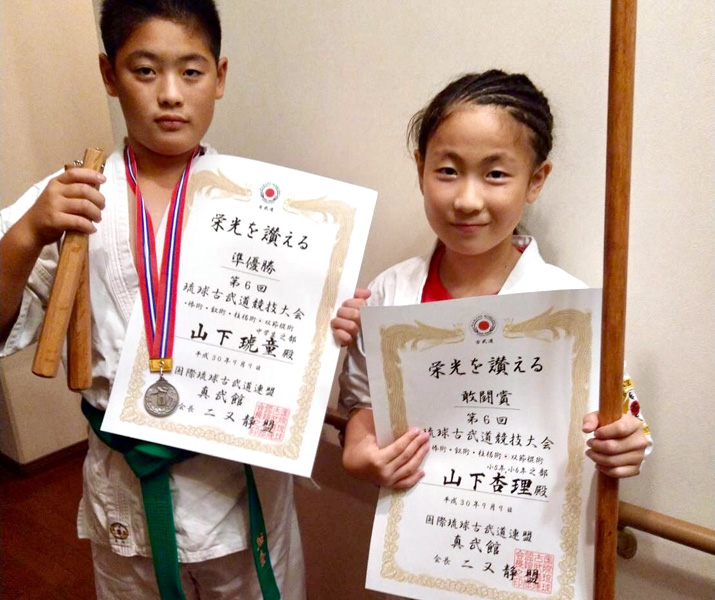 古武道
栄光を讃える
準優勝
第6回
琉球古武道競技大会
棒術・釵術・拐術・双節棍術
中学生之部
山下琥童殿
平成30年9月9日
国際琉球古武道連盟
真武館
会長 二又静盟
古武道
栄光を讃える
敢闘賞
第6回
琉球古武道競技大会
棒術・釵術・拐術・双節棍術
小5年,小6年之部
山下杏理殿
平成30年9月9日
国際琉球古武道連盟
真武館
会長 二又静盟